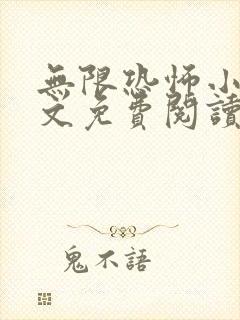 無限恐怖小
文免費閱讀
鬼不語